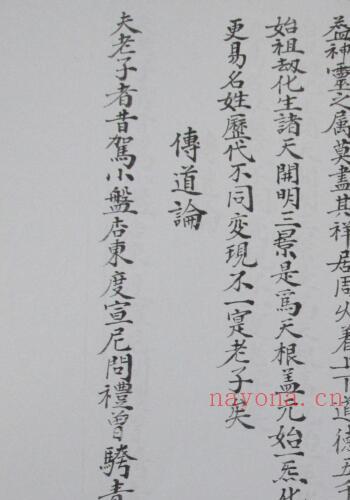 益神靈之属莫盡其祥居周火着上下道德五千
始祖劫化生諸天開明三景是爲天根盖元始一炁化
更易名姓歷代不同变現不一寔老子矣
傳道論
夫老子者昔駕小盤店東度宣尼問禮曾騎青
nayona.cn